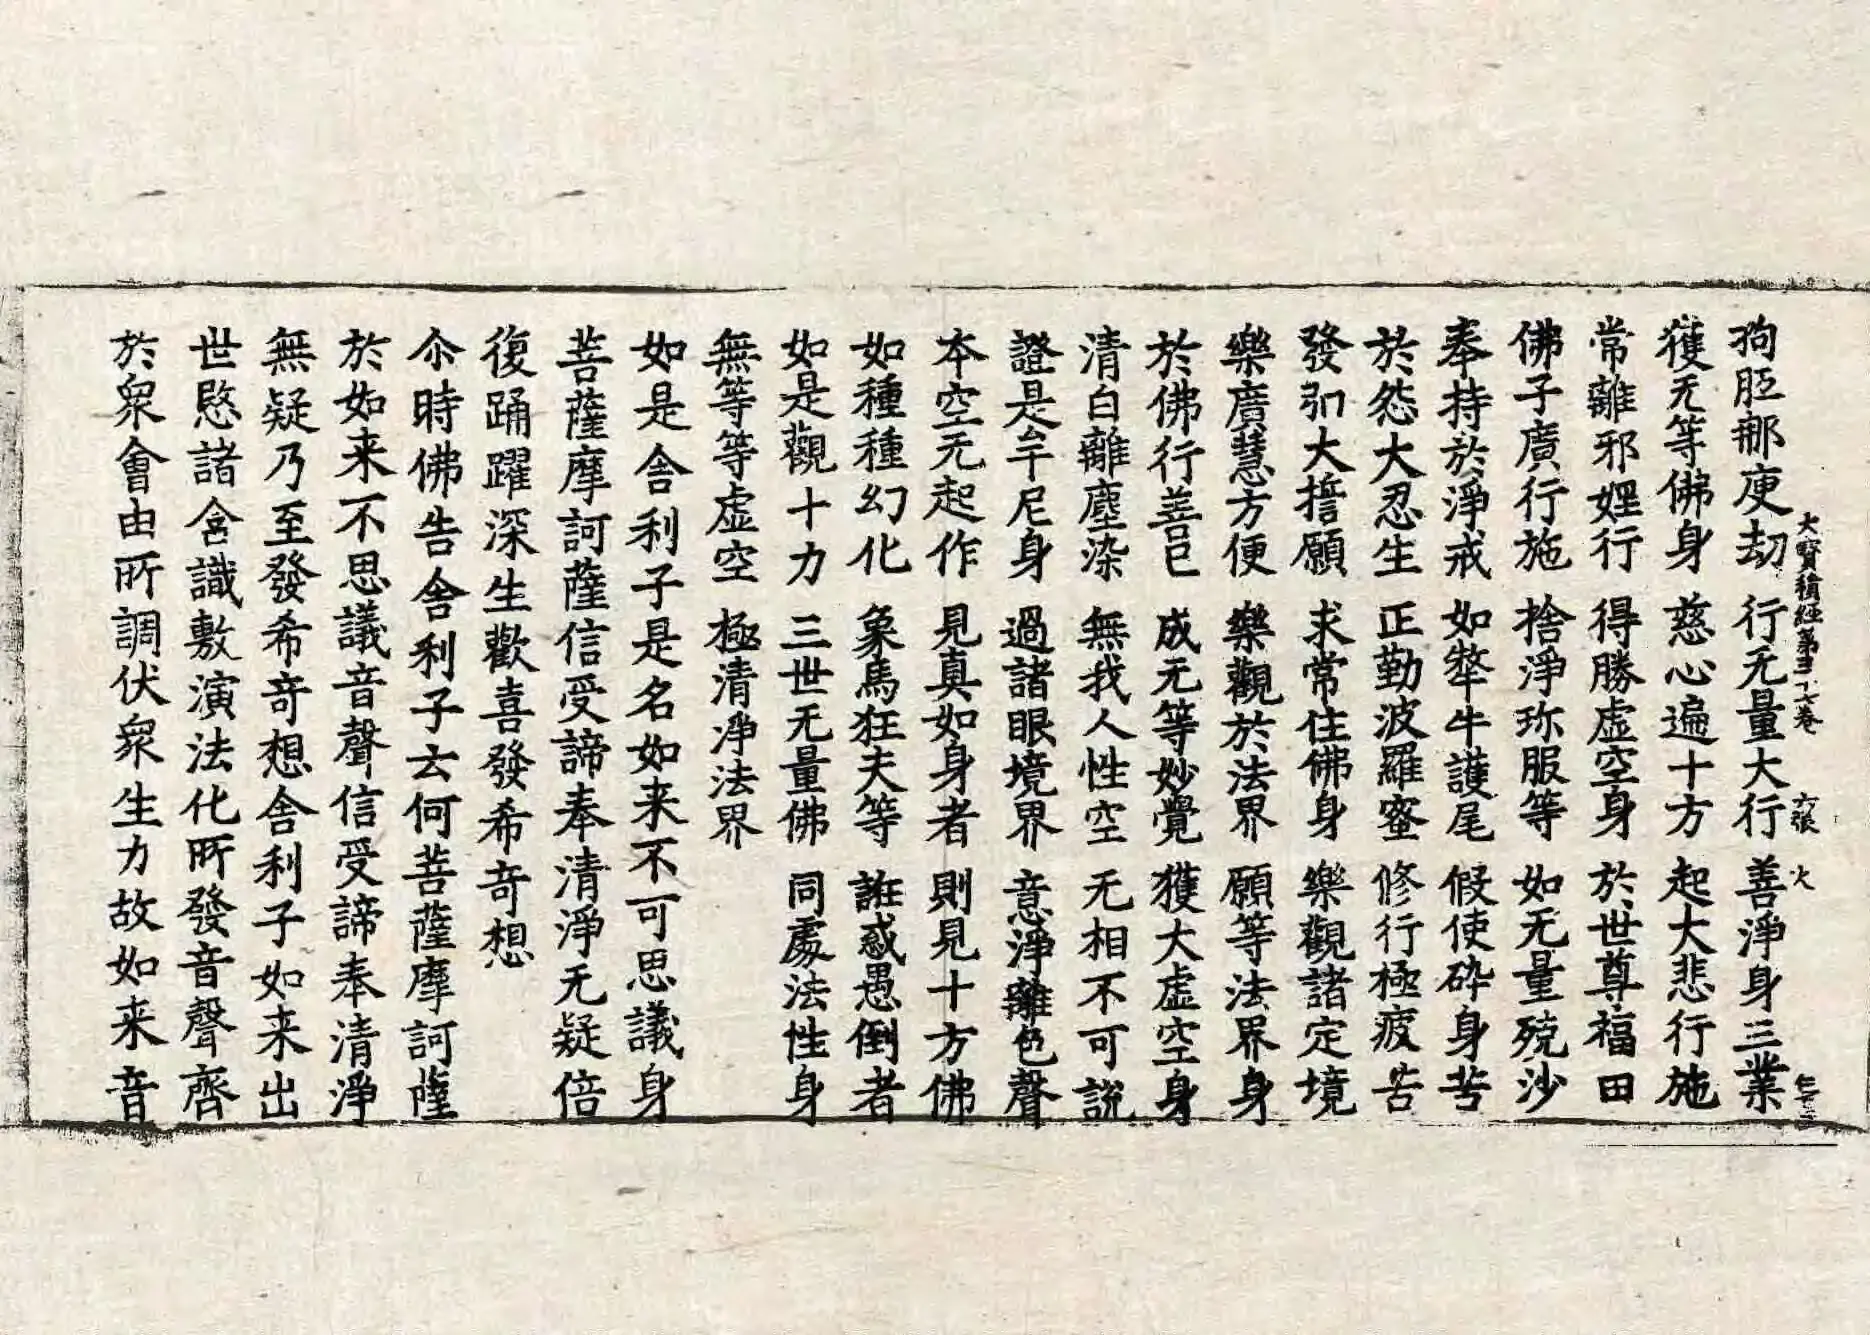 大寳積經第三十七卷 六張 火
拘胝那庾劫 行无量大行 善淨身三業
獲无等佛身 慈心遍十方 起大悲行施
常離邪婬行 得勝虛空身 於世尊福田
佛子廣行施 捨淨珎服等 如无量殑沙
奉持於淨戒 如犛牛護尾 假使碎身苦
於怨大忍生 正勤波羅蜜 修行極疲苦
發弘大誓願 求常住佛身 樂觀諸定境
樂廣慧方便 樂觀於法界 願等法界身
於佛行善已 成无等妙覺 獲大虛空身
清白離塵染 無我人性空 无相不可說
證是牟尼身 過諸眼境界 意淨離色聲
本空无起作 見真如身者 則見十方佛
如種種幻化 象馬狂夫等 誑惑愚倒者
如是觀十力 三世无量佛 同處法性身
無等等虛空 極清淨法界
如是舍利子是名如来不可思議身
菩薩摩訶薩信受諦奉清淨无疑倍
復踊躍深生歡喜發希奇想
尒時佛告舍利子云何菩薩摩訶薩
於如来不思議音聲信受諦奉清淨
無疑乃至發希奇想舍利子如来出
世愍諸含識敷演法化所發音聲齊
於眾會由所調伏眾生力故如来音